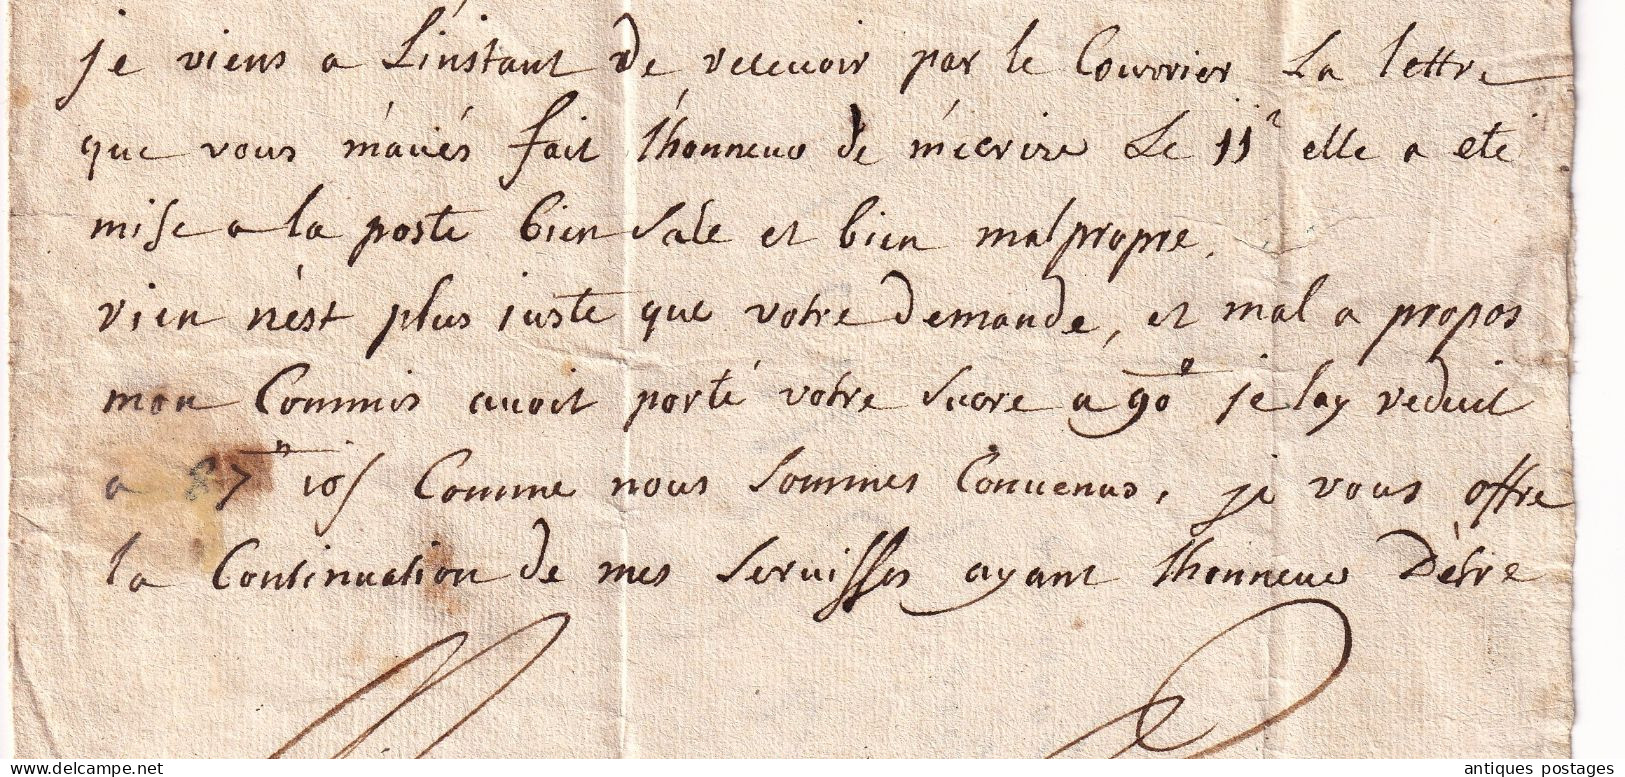 je viens a Linstant de recevoir par le Courrier La lettre
que vous m'aviés fait lhonneur de m'ecrire Le 11e elle a eté
mise a la poste bien sale et bien mal propre,
rien n'est plus juste que votre demande, et mal a propos
mon Commis avoit porté votre sucre a 90# je lay reduit
a 87# 10s Comme nous sommes Convenus, je vous offre
la Continuation de mes servisses ayant lhonneur D'être
antiques postages